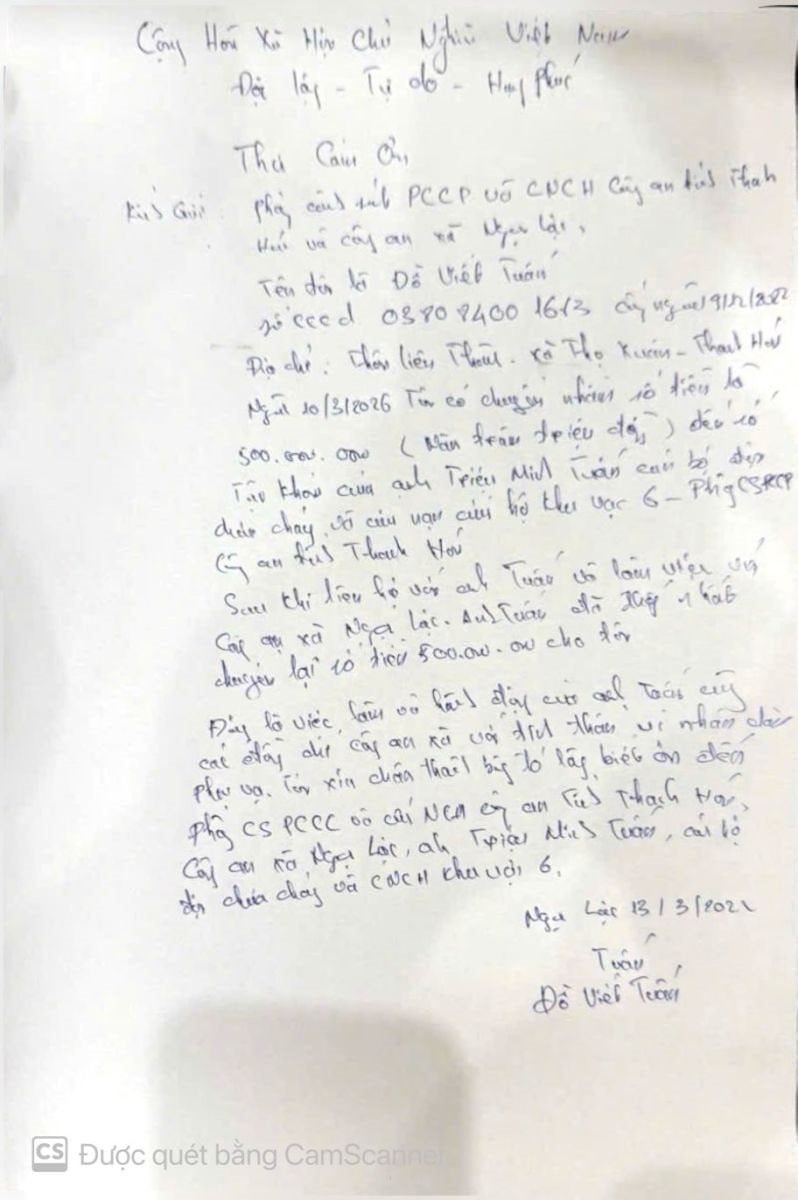 Cộng Hòa Xã Hội Chủ Nghĩa Việt Nam
Độc lập - Tự do - Hạnh phúc
Thư Cảm Ơn
Kính Gửi: Phòng cảnh sát PCCP và CNCH Công an tỉnh Thanh
Hoá và công an xã Ngọc Lặc,
Tên tôn là Đỗ Viết Tuấn
số cccd 0380840016 cấp ngày 19/12/2022
Địa chỉ: Thôn liên Thành - xã Thọ Xuân - Thanh Hoá
Ngày 10/3/2026 Tôi có chuyển nhầm số tiền là
500.000.000 (Năm trăm triệu đồng) đến số
Tài khoản của anh Triệu Minh Tuấn cán bộ đội
chữa cháy và cứu nạn cứu hộ khu vực 6 - Phòng CSPCCP
Công an tỉnh Thanh Hoá
Sau khi liên hệ với anh Tuấn và làm việc với
Công an xã Ngọc Lặc. Anh Tuấn đã
chuyển lại số tiền 500.000.000 cho tôi
Đây là việc làm và hành động của anh Tuấn cũng
các đồng chí công an xã với tinh thần vì nhân dân
phục vụ. Tôi xin chân thành bày tỏ lòng biết ơn đến
phòng CS PCCC và công an tỉnh Thanh Hoá,
Công an xã Ngọc Lặc, anh Triệu Minh Tuấn, cán bộ
đội chữa cháy và CNCH khu vực 6.
Ngọc Lặc 13/3/202
Tuấn
Đỗ Viết Tuấn
CS Được quét bằng CamScanner